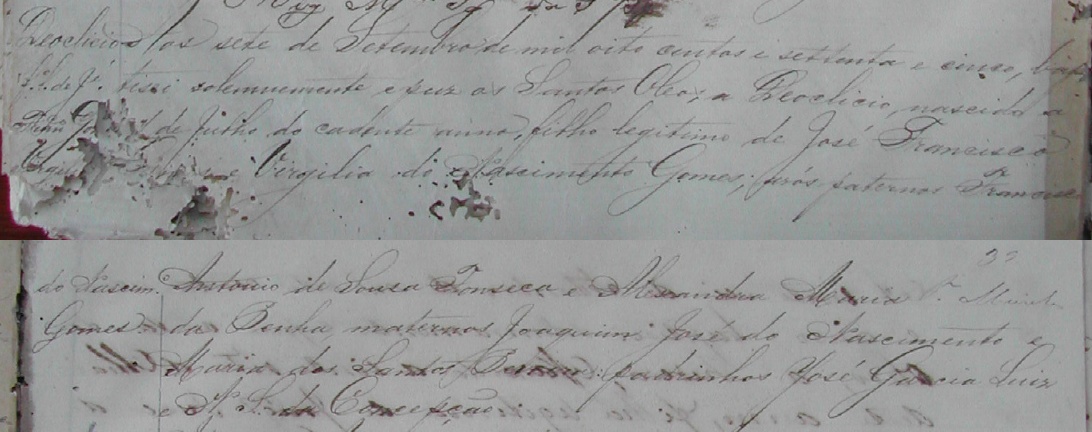 Deoclicio Aos sete de Setembro de mil oito centos e settenta e cinco, bap
f.º de J.e tisei solemnemente e puz os Santos Oleos, a Deoclicio, nascido a
de Julho do cadente anno, filho legitimo de José Francisco
e Virgilia do Nascimento Gomes; avós paternos Francisco
33
do Nascim.to Antonio de Sousa Fonseca e Alexandra Maria
Gomes da Penha, maternos Joaquim José do Nascimento e
Maria dos Santos padrinhos José Garcia Luiz
e N. S. da Conceipção